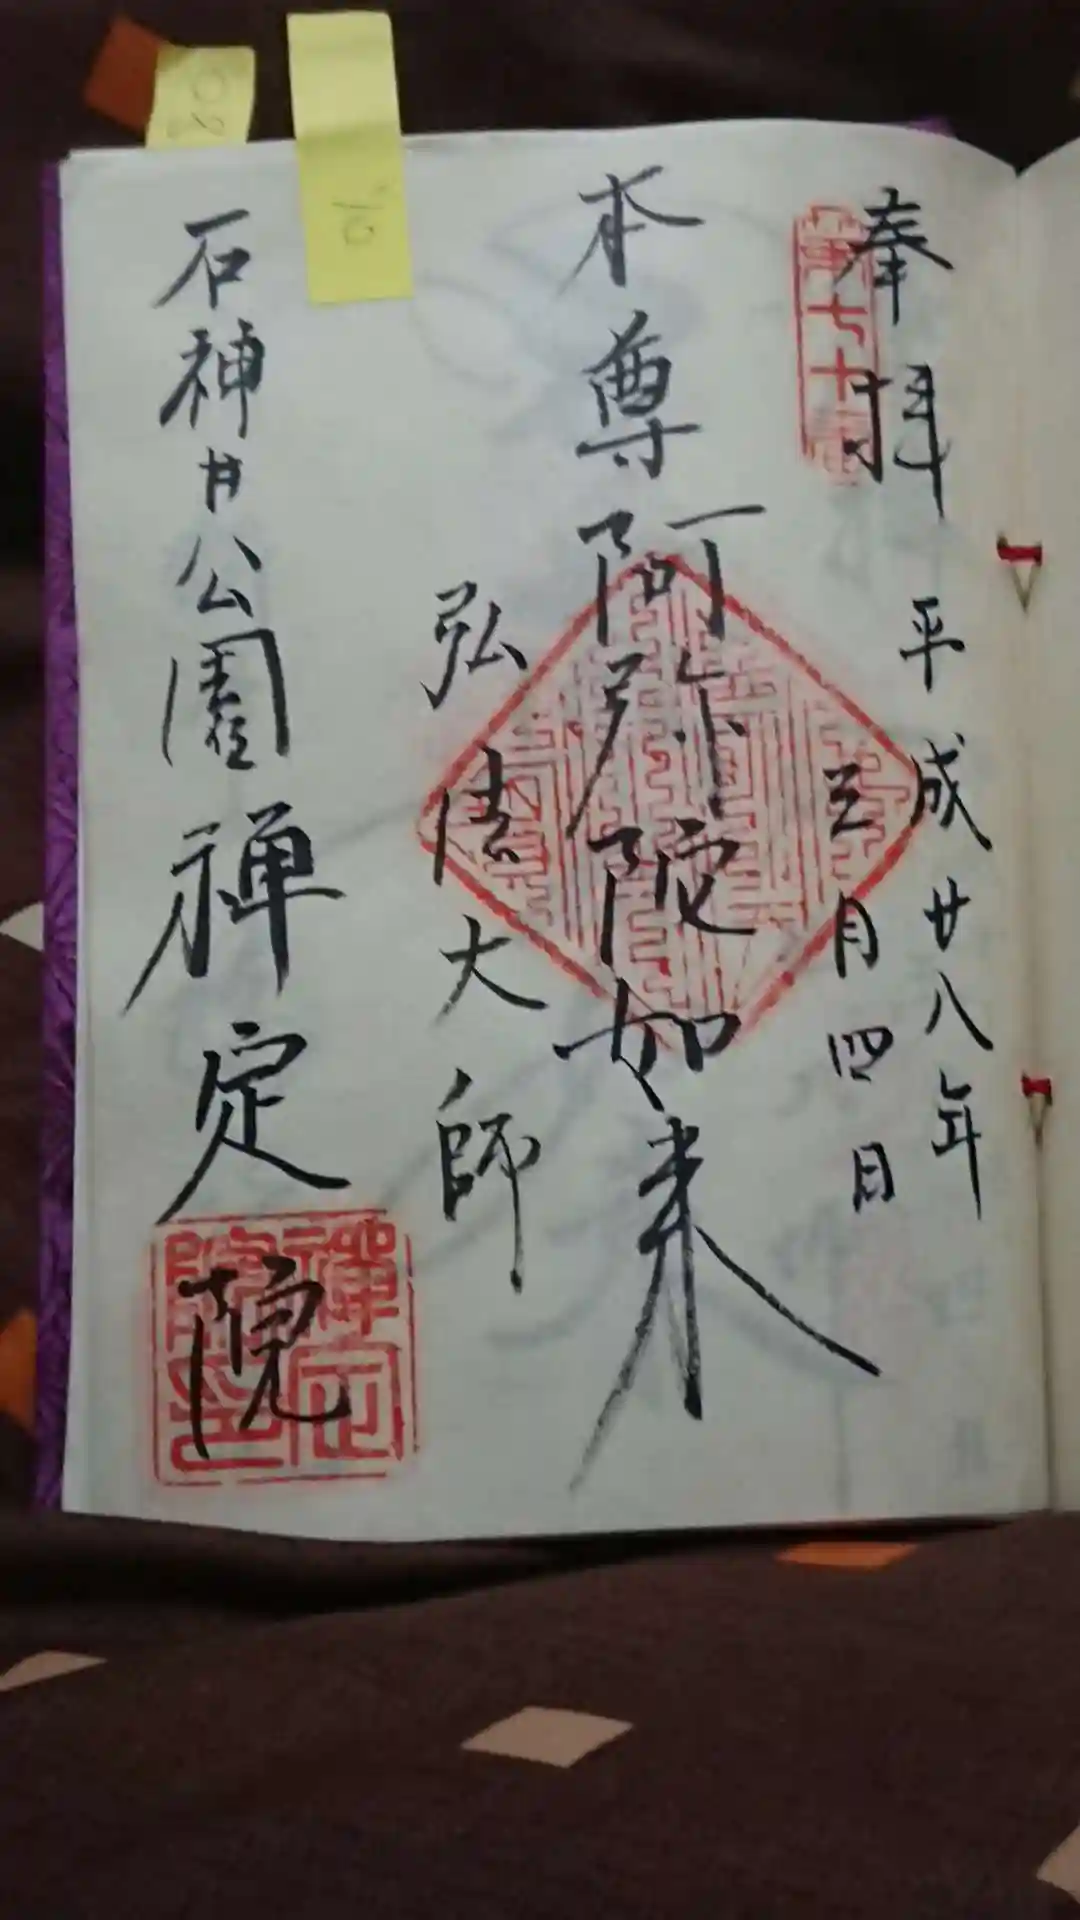 奉拝
第七十番
平成廿八年
三月四日
本尊阿弥陀如来
弘法大師
石神井公園禅定院